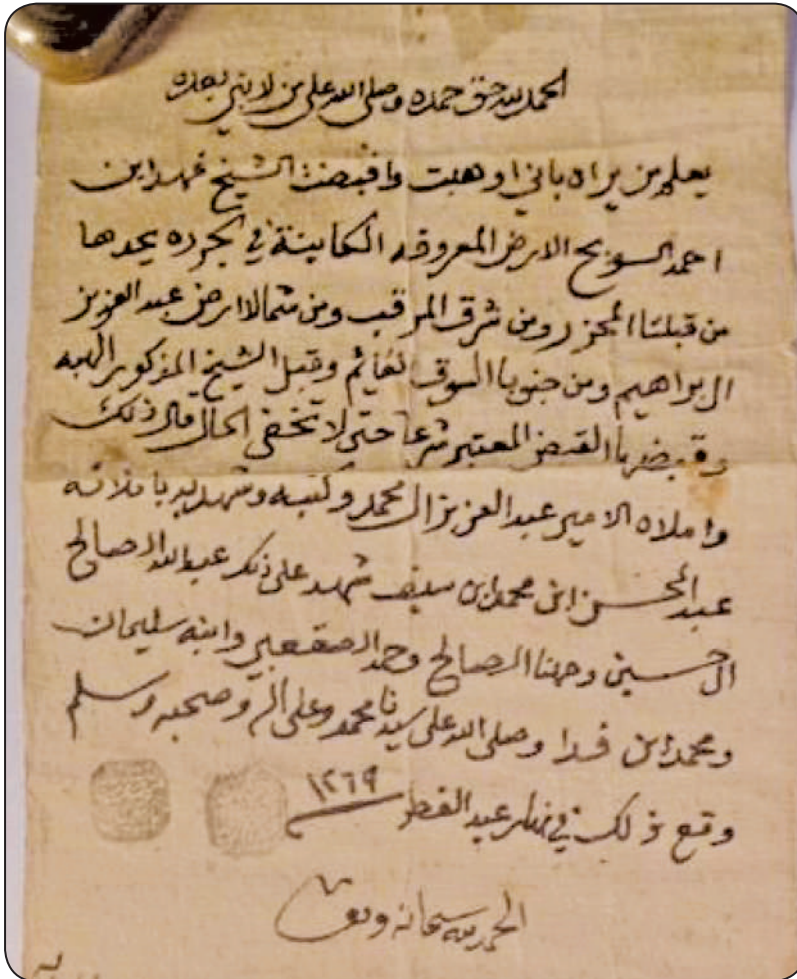 الحمد لله حق حمده وصلى الله على من لا نبي بعده
يعلم من يراه باني اوهبت واقبضت الشيخ فهد ابن
احمد السويح الارض المعروفه الكاينة في الجرده يحدها
من قبلتا المجزر ومن شرق المرقب ومن شمالا ارض عبد العزيز
البراهيم ومن جنوبا السوق القايم وقبل الشيخ المذكور الهبه
وقبضها القبض المعتبر شرعا حتى لا تخفى الحال قال ذلك
واملاه الامير عبد العزيز ال محمد وكتبه وشهد به باملائه
عبد المحسن ابن محمد ابن سيف شهد على ذلك عبد الله الصالح
الحسين ومهنا الصالح وحمد الصقعبي وابنه سليمان
ومحمد ابن فدا وصلى الله على سيدنا محمد وعلى اله وصحبه وسلم
وقع ذلك في نهار عيد الفطر ١٢٦٩
الحمد لله سبحانه